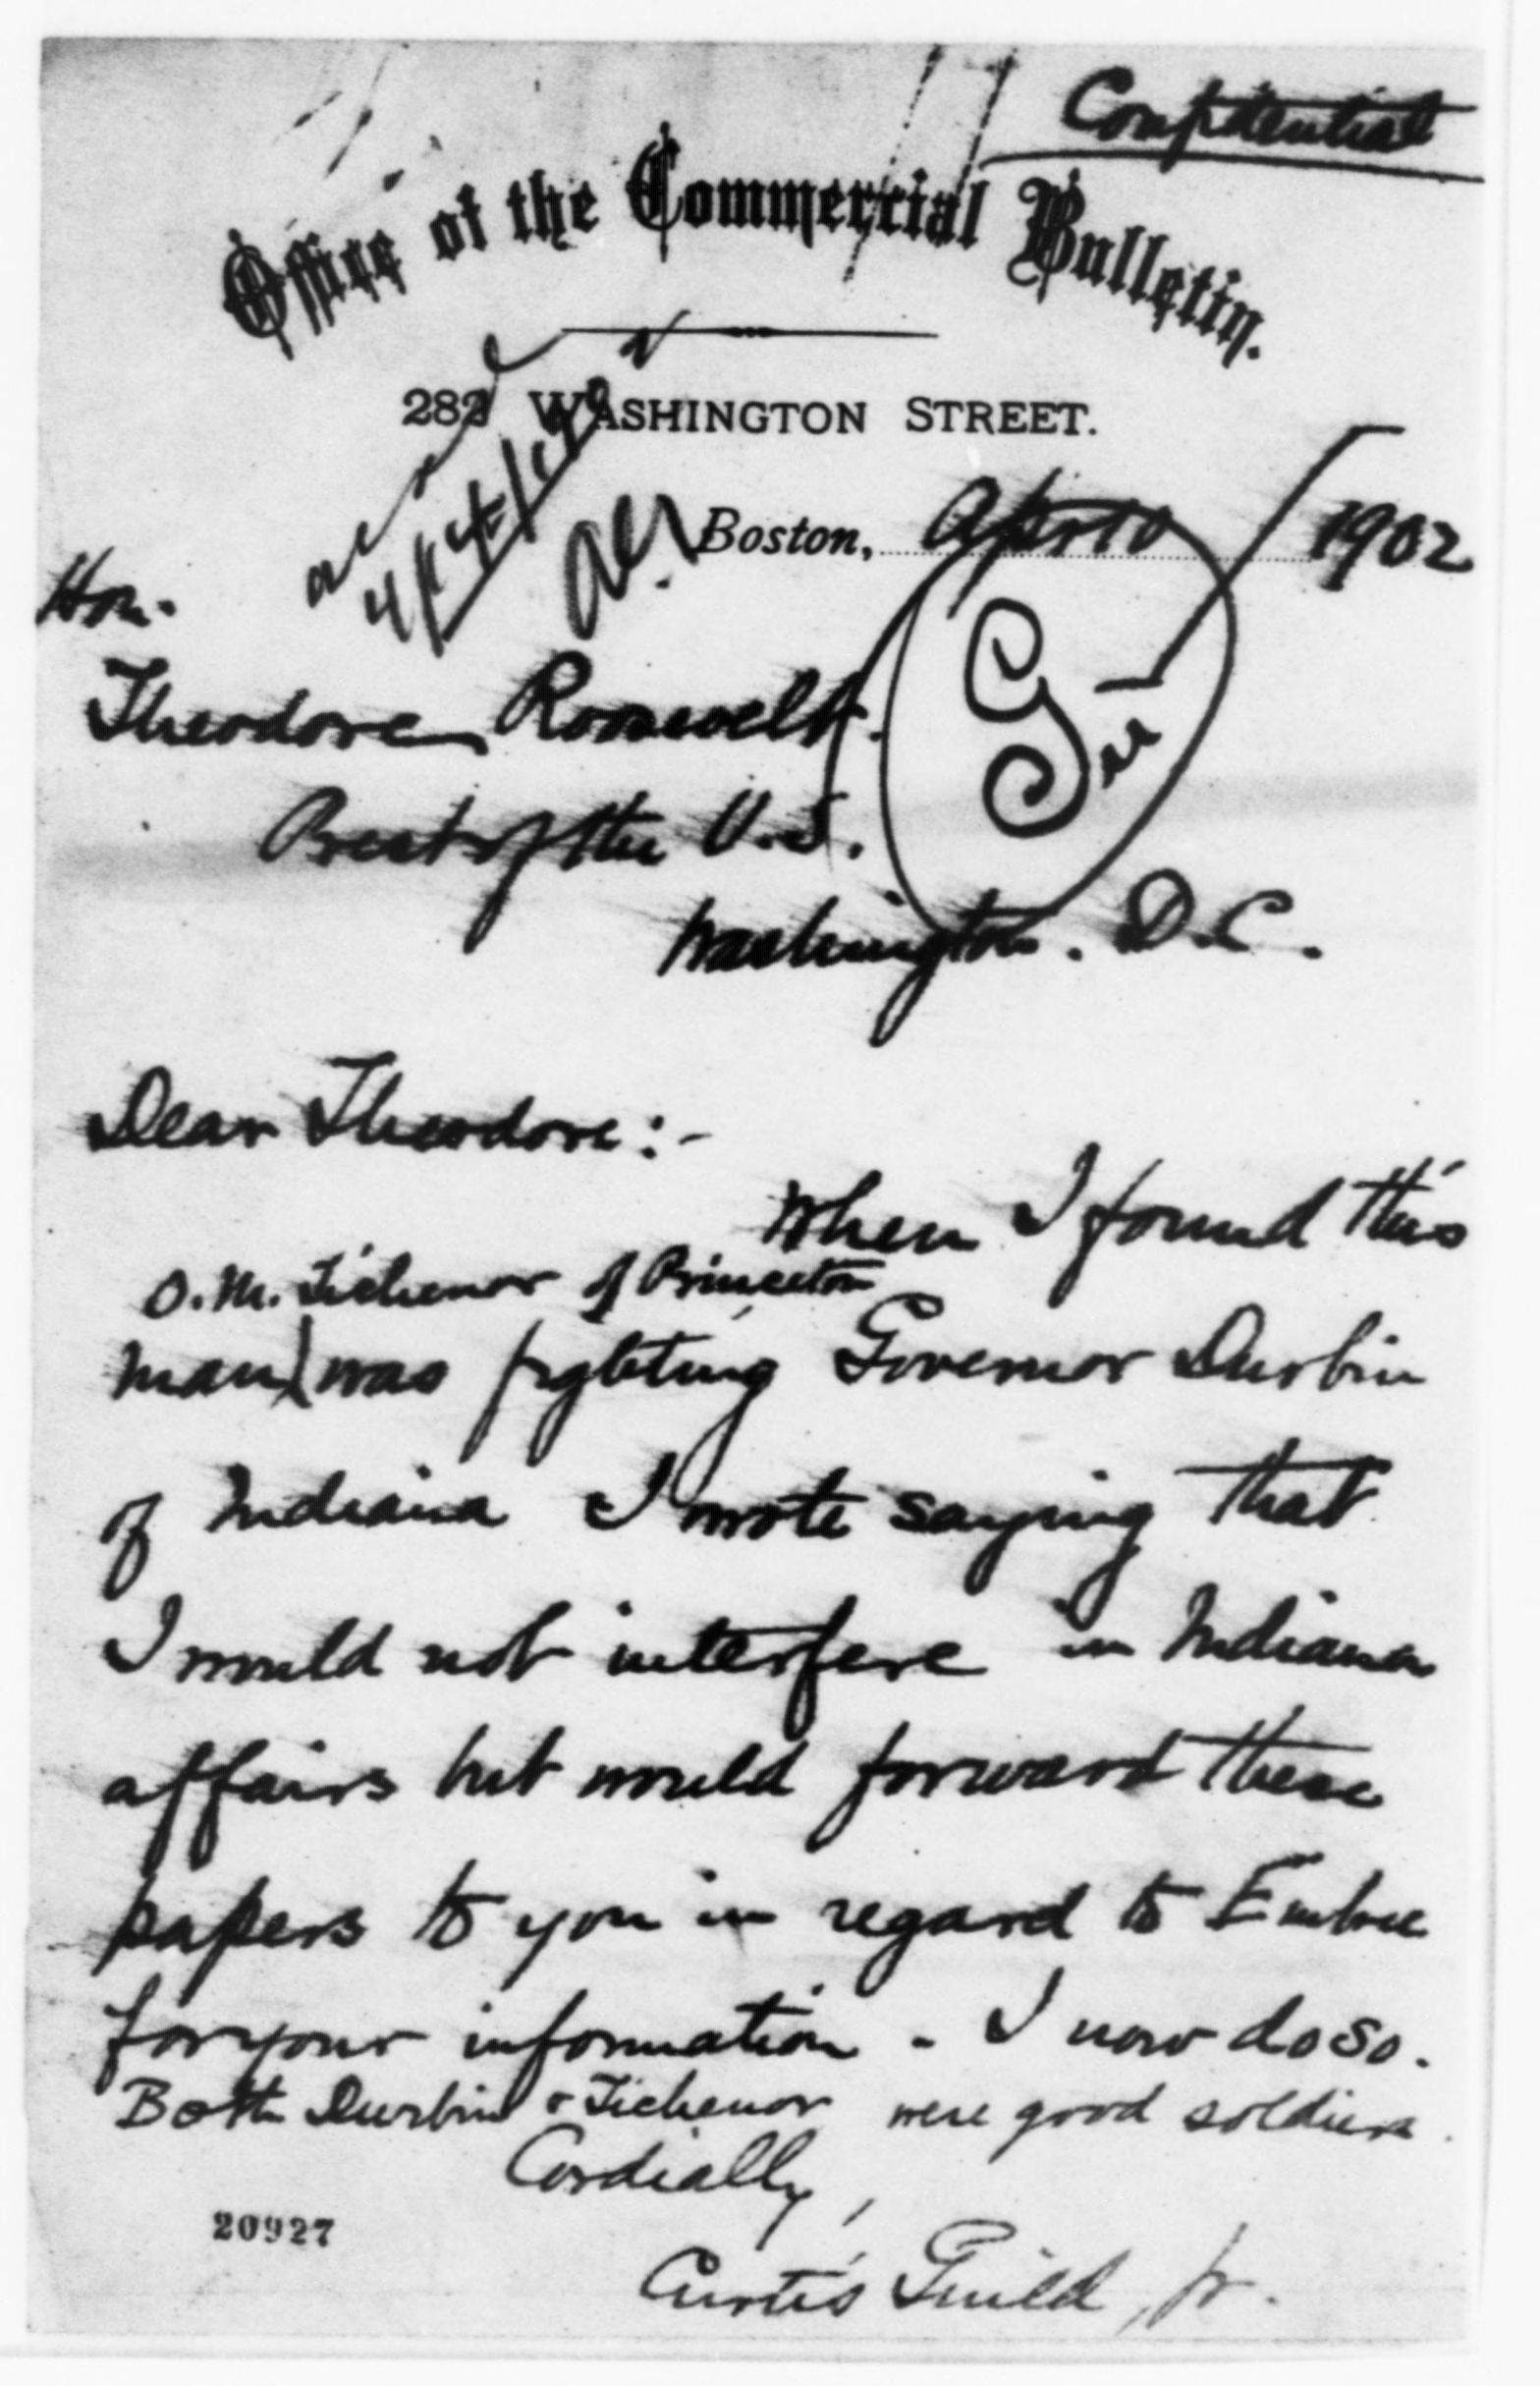 Confidential
Office of the Commercial Bulletin.
282 WASHINGTON STREET.
Boston, Apr 10 1902
Hon.
Theodore Roosevelt.
Prest of the U.S.
Washington. D.C.
Dear Theodore:-
When I found this
O. M. Tichenor of Princeton
man was fighting Governor Durbin
of Indiana I wrote saying that
I would not interfere in Indiana
affairs but would forward these
papers to you in regard to Embree
for your information - I now do so.
Both Durbin & Tichenor were good soldiers.
Cordially,
Curtis Guild, Jr.
20927